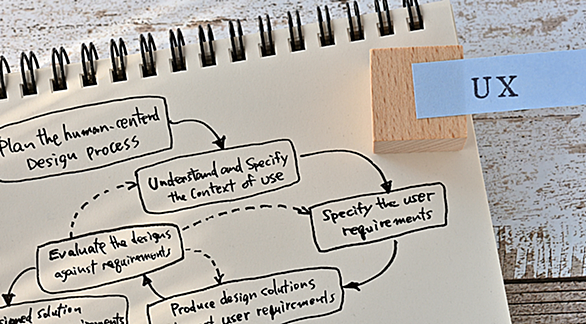 UX
Plan the human-centerd
Design process
Understand and Specify
the Context of use
Specify the user
requirements
Evaluate the designs
against requirements
Produce design solutions
user requirements
solution